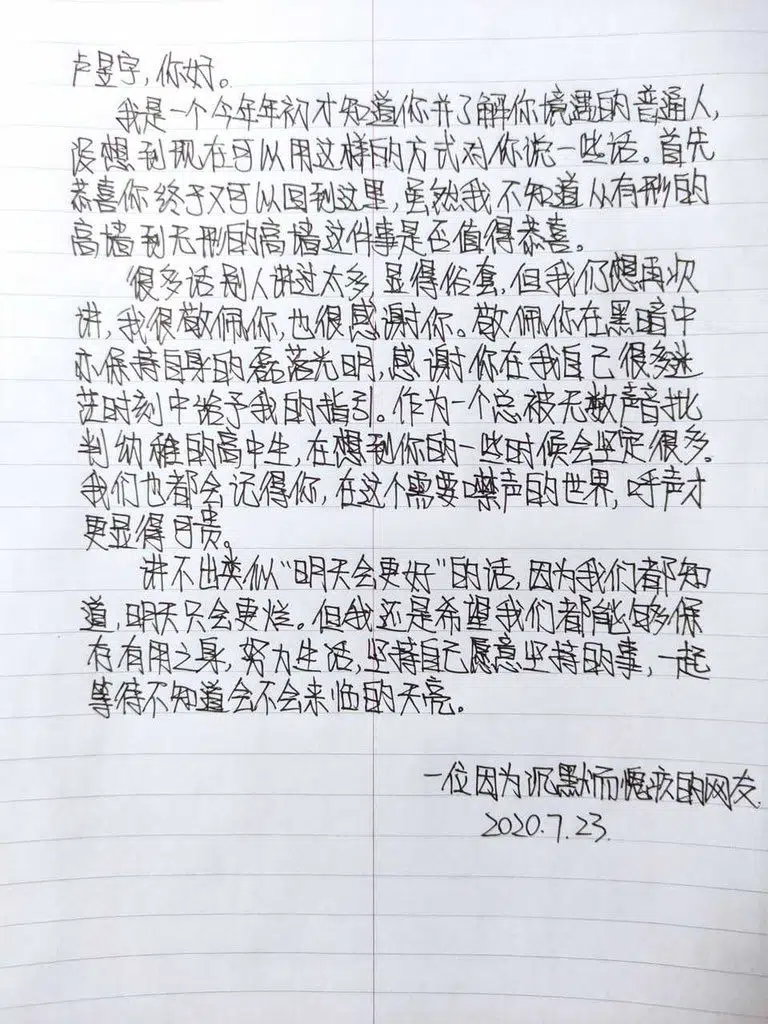 卢昱宇，你好。
我是一个今年年初才知道你并了解你境遇的普通人，
没想到现在可以用这样的方式对你说一些话。首先
恭喜你终于又可以回到这里，虽然我不知道从有形的
高墙到无形的高墙这件事是否值得恭喜。
很多话别人讲过太多，显得俗套，但我们想再次
讲，我很敬佩你，也很感谢你。敬佩你在黑暗中
亦保持自身的磊落光明，感谢你在我自己很多迷
茫时刻中给予我的指引。作为一个总被无数声音批
判幼稚的高中生，在想到你的一些时候会坚定很多。
我们也都会记得你，在这个需要噤声的世界，呼声才
更显得可贵。
讲不出类似“明天会更好”的话，因为我们都知
道，明天只会更烂。但我还是希望我们都能够保
存有用之身，努力生活，坚持自己愿意坚持的事，一起
等待不知道会不会来临的天亮。
一位因为沉默而愧疚的网友.
2020.7.23.